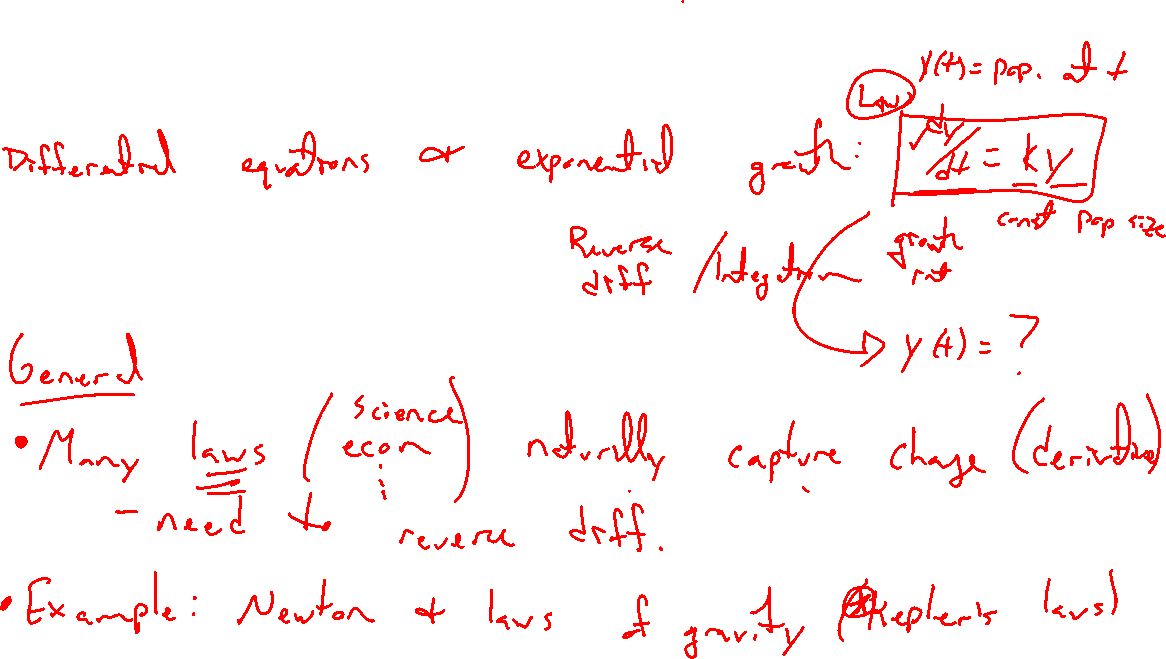 y(t) = pop. at t
Law
Differential equations & exponential growth: dy/dt = ky
const pop size
growth rat
Reverse diff / Integration
y(t) = ?
General
• Many laws (science econ ⋮) naturally capture change (derivative)
- need to reverse diff.
• Example: Newton & laws of gravity (Kepler's laws)